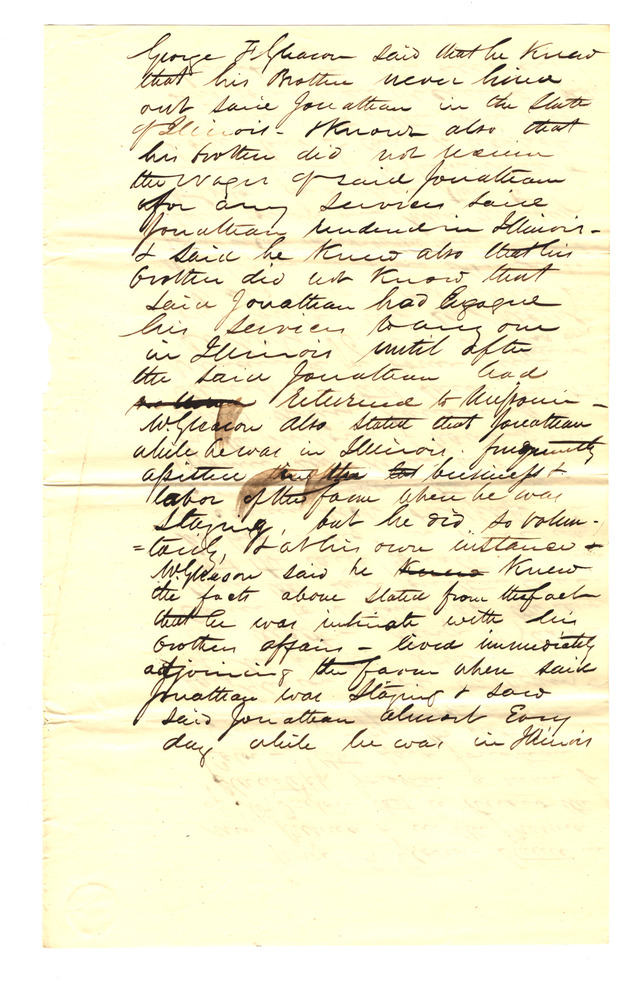 George F Gleason said that he Knew
that his Brother never hired
out said Jonathan in the State
of Illinois - & Knows also that
his brother did not receive
the wages of said Jonathan
for any services said
Jonathan rendered in Illinois -
& said he Knew also that his
brother did not Know that
said Jonathan had Engaged
his services to any one
in Illinois until after
the said Jonathan had
returned to Missouri -
Mr Gleason also stated that Jonathan
while he was in Illinois frequently
assisted in the business &
labor of the farm where he was
staying, but he did so volun-
=tarily, & at his own instance &
Mr. Gleason said he Knew Knew
the facts above stated from the fact
that he was intimate with his
brothers affairs - lived immediately
adjoining the farm where said
Jonathan was staying & saw
said Jonathan almost Every
day while he was in Illinois